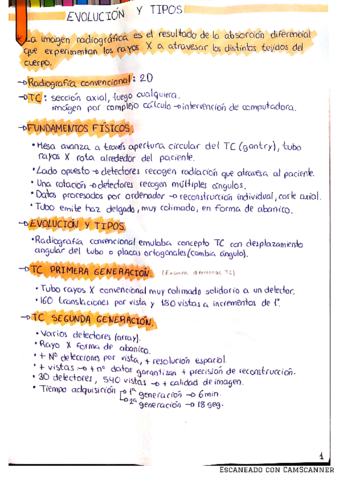 EVOLUCIÓN Y TIPOS
La imagen radiográfica es el resultado de la absorción diferencial
que experimentan los rayos X a atravesar los distintos tejidos del
cuerpo.
→Radiografía convencional: 2D
→TC: sección axial, luego cualquiera.
imágen por complejo cálculo →intervención de computadora.
→FUNDAMENTOS FÍSICOS
• Mesa avanza a través apertura circular del TC (gantry), tubo
rayos X rota alrededor del paciente.
• Lado opuesto → detectores recogen radiación que atraviesa al paciente.
• Una rotación → detectores recogen múltiples ángulos.
• Datos procesados por ordenador → reconstrucción individual, corte axial.
• Tubo emite haz delgado, muy colimado, en forma de abanico.
→EVOLUCIÓN Y TIPOS
• Radiografía convencional emulaba concepto TC con desplazamiento
angular del tubo o placas ortogonales (cambia ángulo).
→TC PRIMERA GENERACIÓN
• Tubo rayos X convencional muy colimado solidario a un detector.
• 160 translaciones por vista y 180 vistas a incrementos de 1º.
→TC SEGUNDA GENERACIÓN
• Varios detectores (array).
• Rayo X forma de abanico.
• + Nº detecciones por vista, + resolución espacial.
• + vistas → + nº datos garantizan + precisión de reconstrucción.
• 30 detectores, 540 vistas → + calidad de imagen.
• Tiempo adquisición → 1ª generación → 6 min.
→ 2ª generación → 18 seg.
1
ESCANEADO CON CAMSCANNER